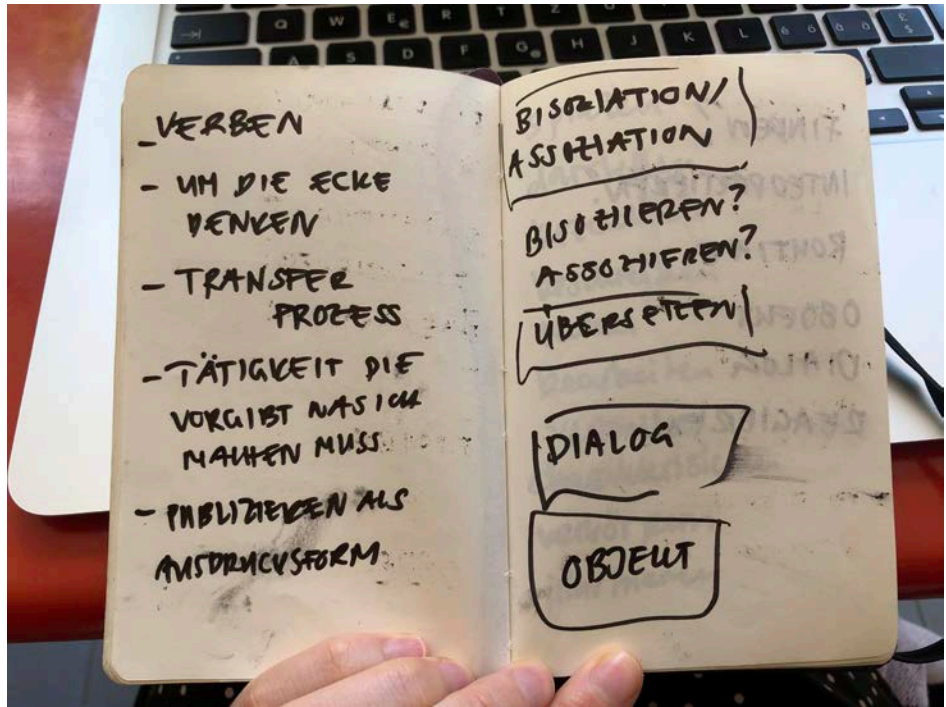 - VERBEN
- UM DIE ECKE
DENKEN
- TRANSFER
PROZESS
- TÄTIGKEIT DIE
VORGIBT WAS ICH
MACHEN MUSS
- PUBLIZIEREN ALS
AUSDRUCKSFORM
BISOZIATION/
ASSOZIATION
BISOZIIEREN?
ASSOZIIEREN?
ÜBERSETZEN
DIALOG
OBJEKT